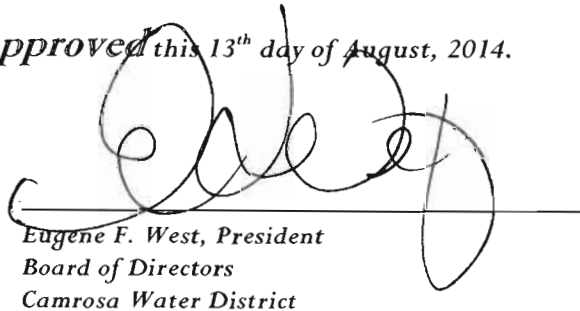 pproved this 13th day of August, 2014.
Eugene F. West, President
Board of Directors
Camrosa Water District